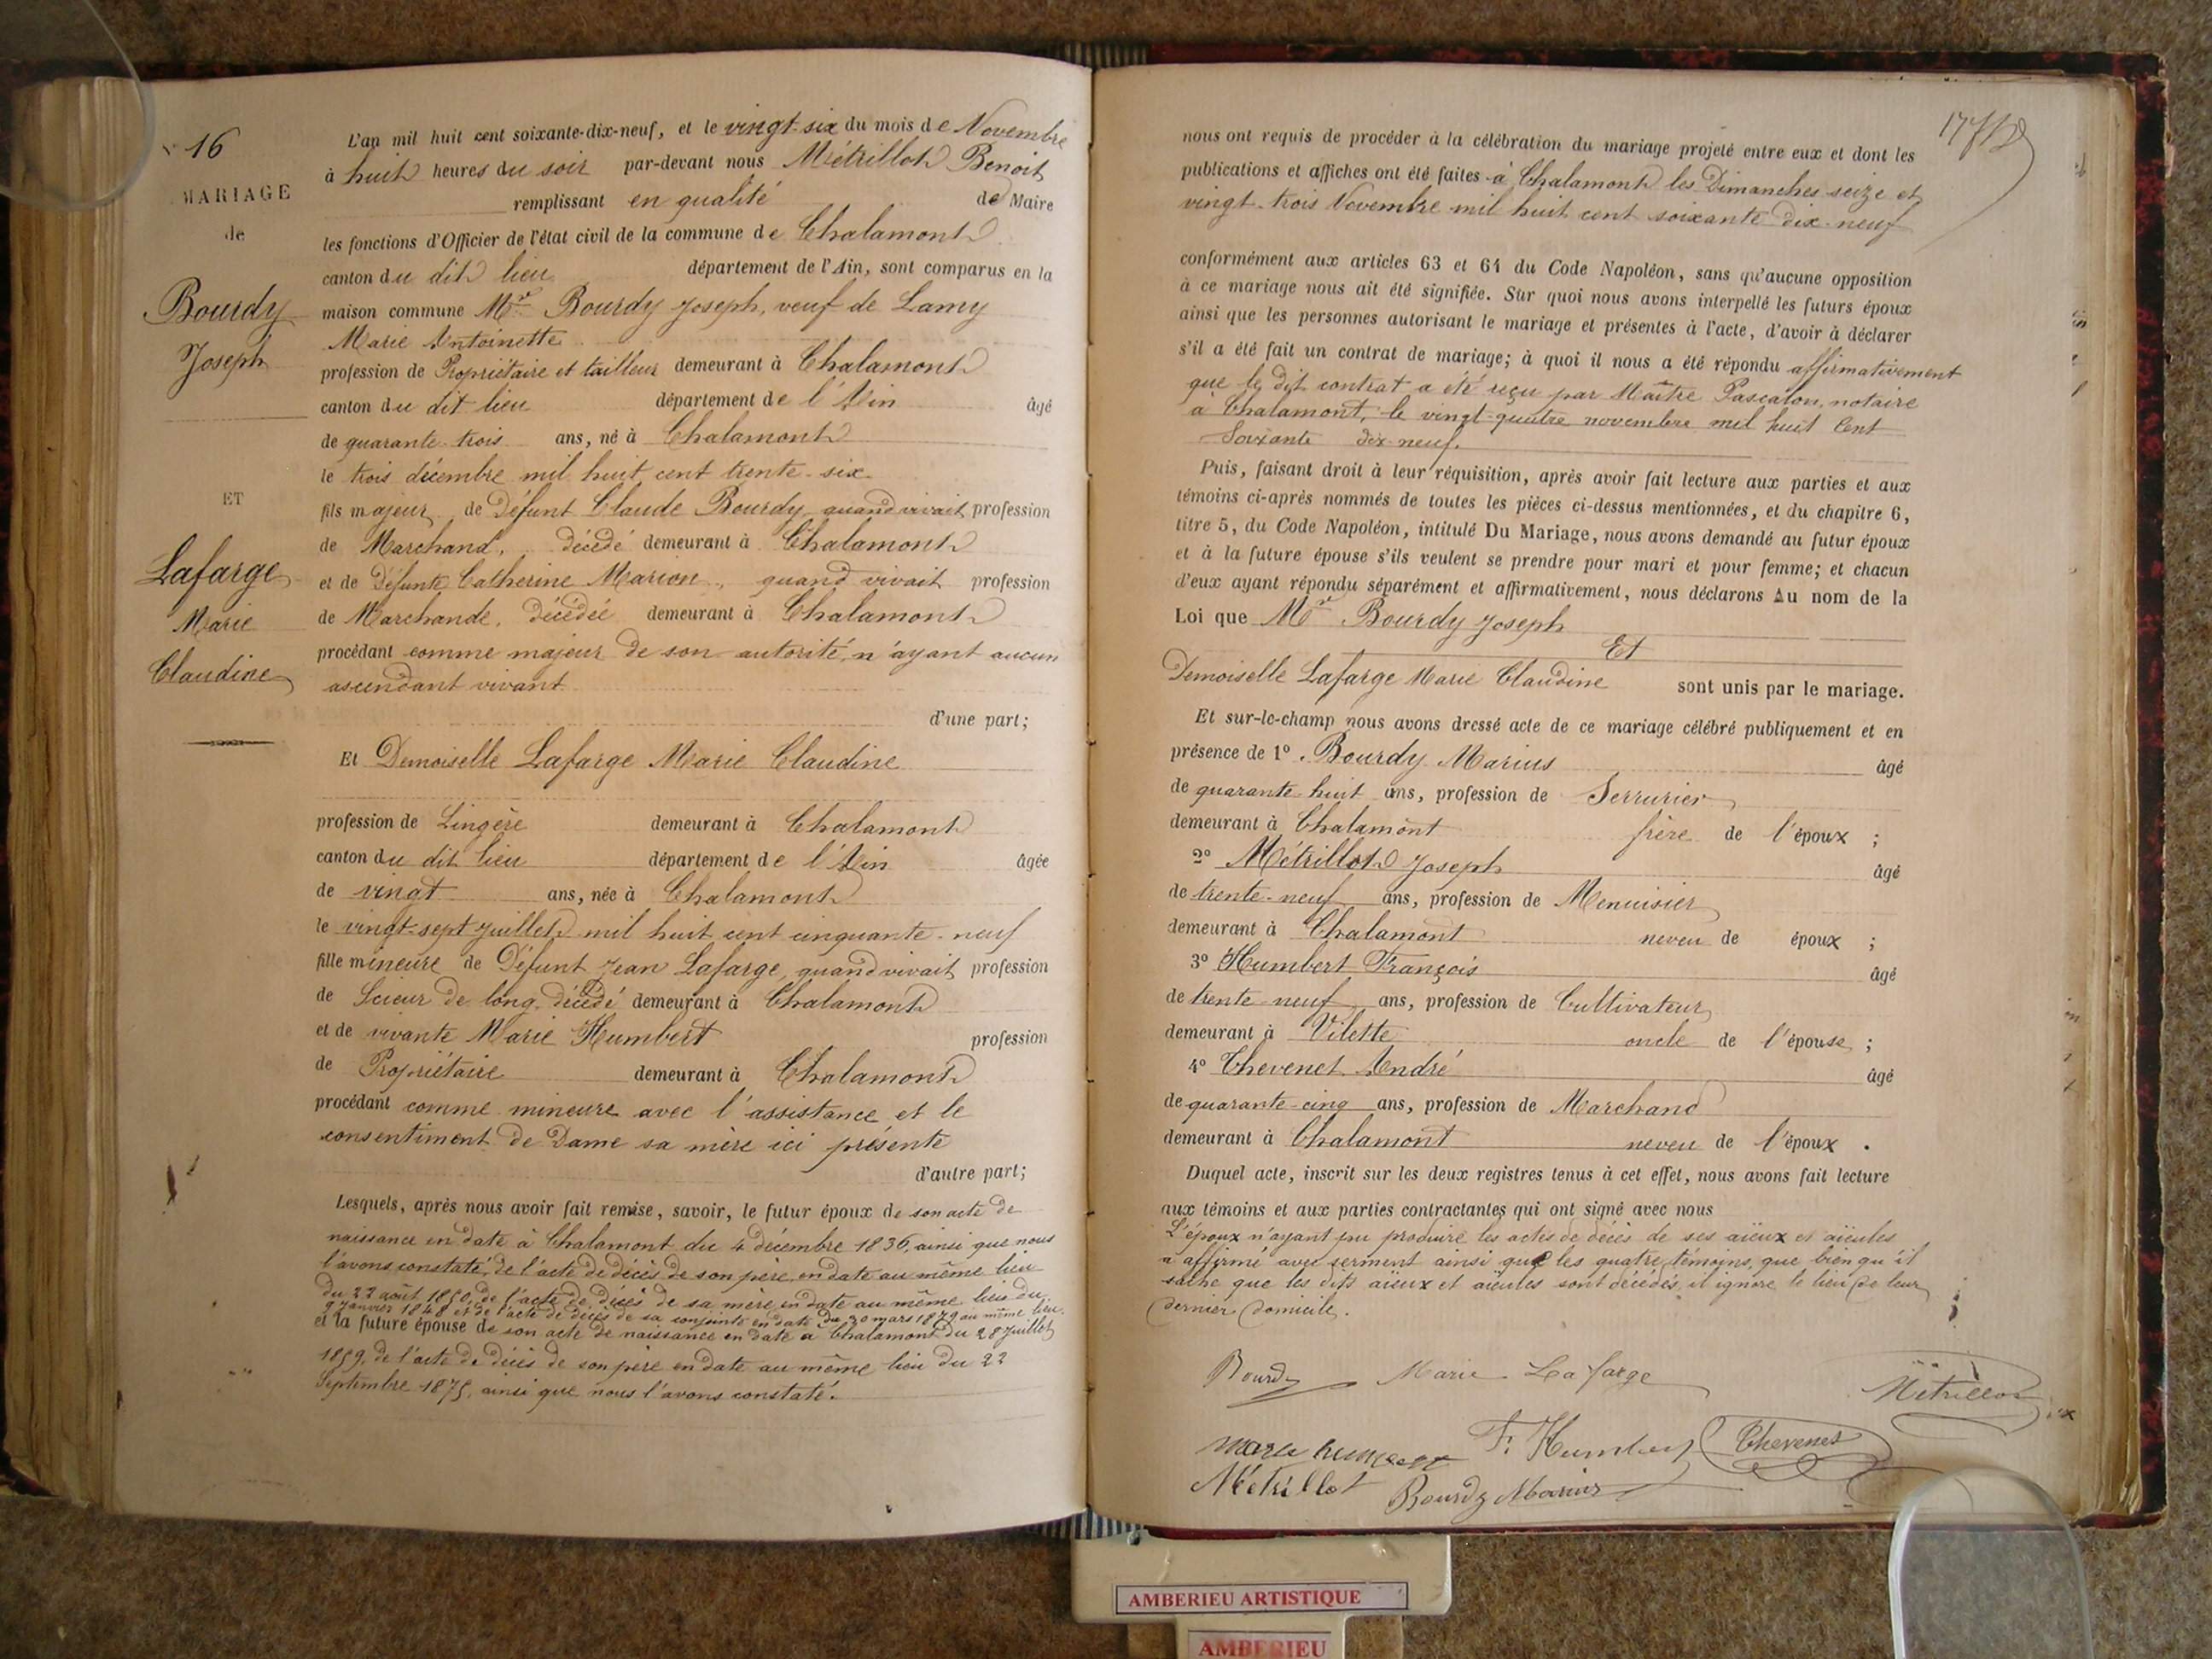 N° 16
MARIAGE
de
Bourdy
Joseph
ET
Lafarge
Marie
Claudine
L'an mil huit cent soixante-dix-neuf, et le vingt-six du mois de Novembre
à huit heures du soir par-devant nous Métrillot Benoit
remplissant en qualité de Maire
les fonctions d'Officier de l'état civil de la commune de Chalamont
canton du dit lieu département de l'Ain, sont comparus en la
maison commune Mr Bourdy Joseph, veuf de Lamy
Marie Antoinette
profession de Propriétaire et tailleur demeurant à Chalamont
canton du dit lieu département de l'Ain âgé
de quarante trois ans, né à Chalamont
le trois décembre mil huit cent trente-six
fils majeur de Défunt Claude Bourdy, quand vivait profession
de Marchand, décédé demeurant à Chalamont
et de Défunte Catherine Marion, quand vivait profession
de Marchande, décédée demeurant à Chalamont
procédant comme majeur de son autorité, n'ayant aucun
ascendant vivant
d'une part;
Et Demoiselle Lafarge Marie Claudine
profession de Lingère demeurant à Chalamont
canton du dit lieu département de l'Ain âgée
de vingt ans, née à Chalamont
le vingt-sept juillet mil huit cent cinquante-neuf
fille mineure de Défunt Jean Lafarge, quand vivait profession
de Scieur de long, décédé demeurant à Chalamont
et de vivante Marie Humbert profession
de Propriétaire demeurant à Chalamont
procédant comme mineure avec l'assistance et le
consentiment de Dame sa mère ici présente
d'autre part;
Lesquels, après nous avoir fait remise, savoir, le futur époux de son acte de
naissance en date à Chalamont du 4 décembre 1836, ainsi que nous
l'avons constaté, de l'acte de décès de son père, en date au même lieu
du 22 août 1850, de l'acte de décès de sa mère, en date au même lieu du
9 janvier 1848 et de l'acte de décès de sa conjointe en date du 20 mars 1879 au même lieu
et la future épouse de son acte de naissance en date à Chalamont du 28 juillet
1859, de l'acte de décès de son père en date au même lieu du 22
Septembre 1875, ainsi que nous l'avons constaté.
nous ont requis de procéder à la célébration du mariage projeté entre eux et dont les
publications et affiches ont été faites à Chalamont les Dimanches seize et
vingt-trois Novembre mil huit cent soixante dix-neuf
conformément aux articles 63 et 64 du Code Napoléon, sans qu'aucune opposition
à ce mariage nous ait été signifiée. Sur quoi nous avons interpellé les futurs époux
ainsi que les personnes autorisant le mariage et présentes à l'acte, d'avoir à déclarer
s'il a été fait un contrat de mariage; à quoi il nous a été répondu affirmativement
que le dit contrat a été reçu par Maître Pascalon, notaire
à Chalamont, le vingt-quatre novembre mil huit Cent
Soixante dix-neuf.
Puis, faisant droit à leur réquisition, après avoir fait lecture aux parties et aux
témoins ci-après nommés de toutes les pièces ci-dessus mentionnées, et du chapitre 6,
titre 5, du Code Napoléon, intitulé Du Mariage, nous avons demandé au futur époux
et à la future épouse s'ils veulent se prendre pour mari et pour femme; et chacun
d'eux ayant répondu séparément et affirmativement, nous déclarons Au nom de la
Loi que Mr Bourdy Joseph
Et
Demoiselle Lafarge Marie Claudine sont unis par le mariage.
Et sur-le-champ nous avons dressé acte de ce mariage célébré publiquement et en
présence de 1° Bourdy Marius âgé
de quarante huit ans, profession de Serrurier
demeurant à Chalamont frère de l'époux ;
2° Métrillot Joseph âgé
de trente-neuf ans, profession de Menuisier
demeurant à Chalamont neveu de époux ;
3° Humbert François âgé
de trente-neuf ans, profession de Cultivateur
demeurant à Vilette oncle de l'épouse ;
4° Chevenet André âgé
de quarante-cinq ans, profession de Marchand
demeurant à Chalamont neveu de l'époux .
Duquel acte, inscrit sur les deux registres tenus à cet effet, nous avons fait lecture
aux témoins et aux parties contractantes qui ont signé avec nous
L'époux n'ayant pu produire les actes de décès de ses aïeux et aïeules
a affirmé avec serment ainsi que les quatre témoins, que bien qu'il
sache que les dits aïeux et aïeules sont décédés, il ignore le lieu de leur
dernier domicile.
Bourdy Marie Lafarge Métrillot
marie humbert F. Humbert Chevenet
Métrillot Bourdy Marius
AMBERIEU ARTISTIQUE
AMBERIEU